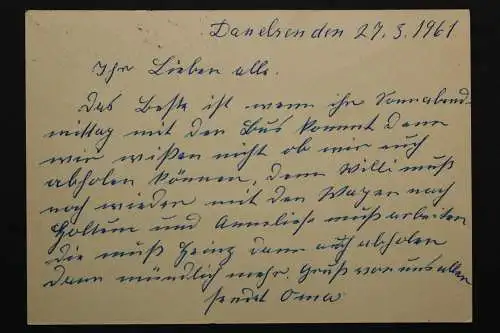 Danelsen den 27.3.1961
Ihr Lieben alle.
Das Beste ist wenn ihr Sonnabend-
mittag mit den Bus kommt denn
wir wißen nicht ob wir euch
abholen können, denn Willi muß
noch wieder mit den Wagen nach
Holtum und Anneliese muß arbeiten
die muß Heinz dann auch abholen
dann mündlich mehr. Gruß von uns allen
sendet Oma